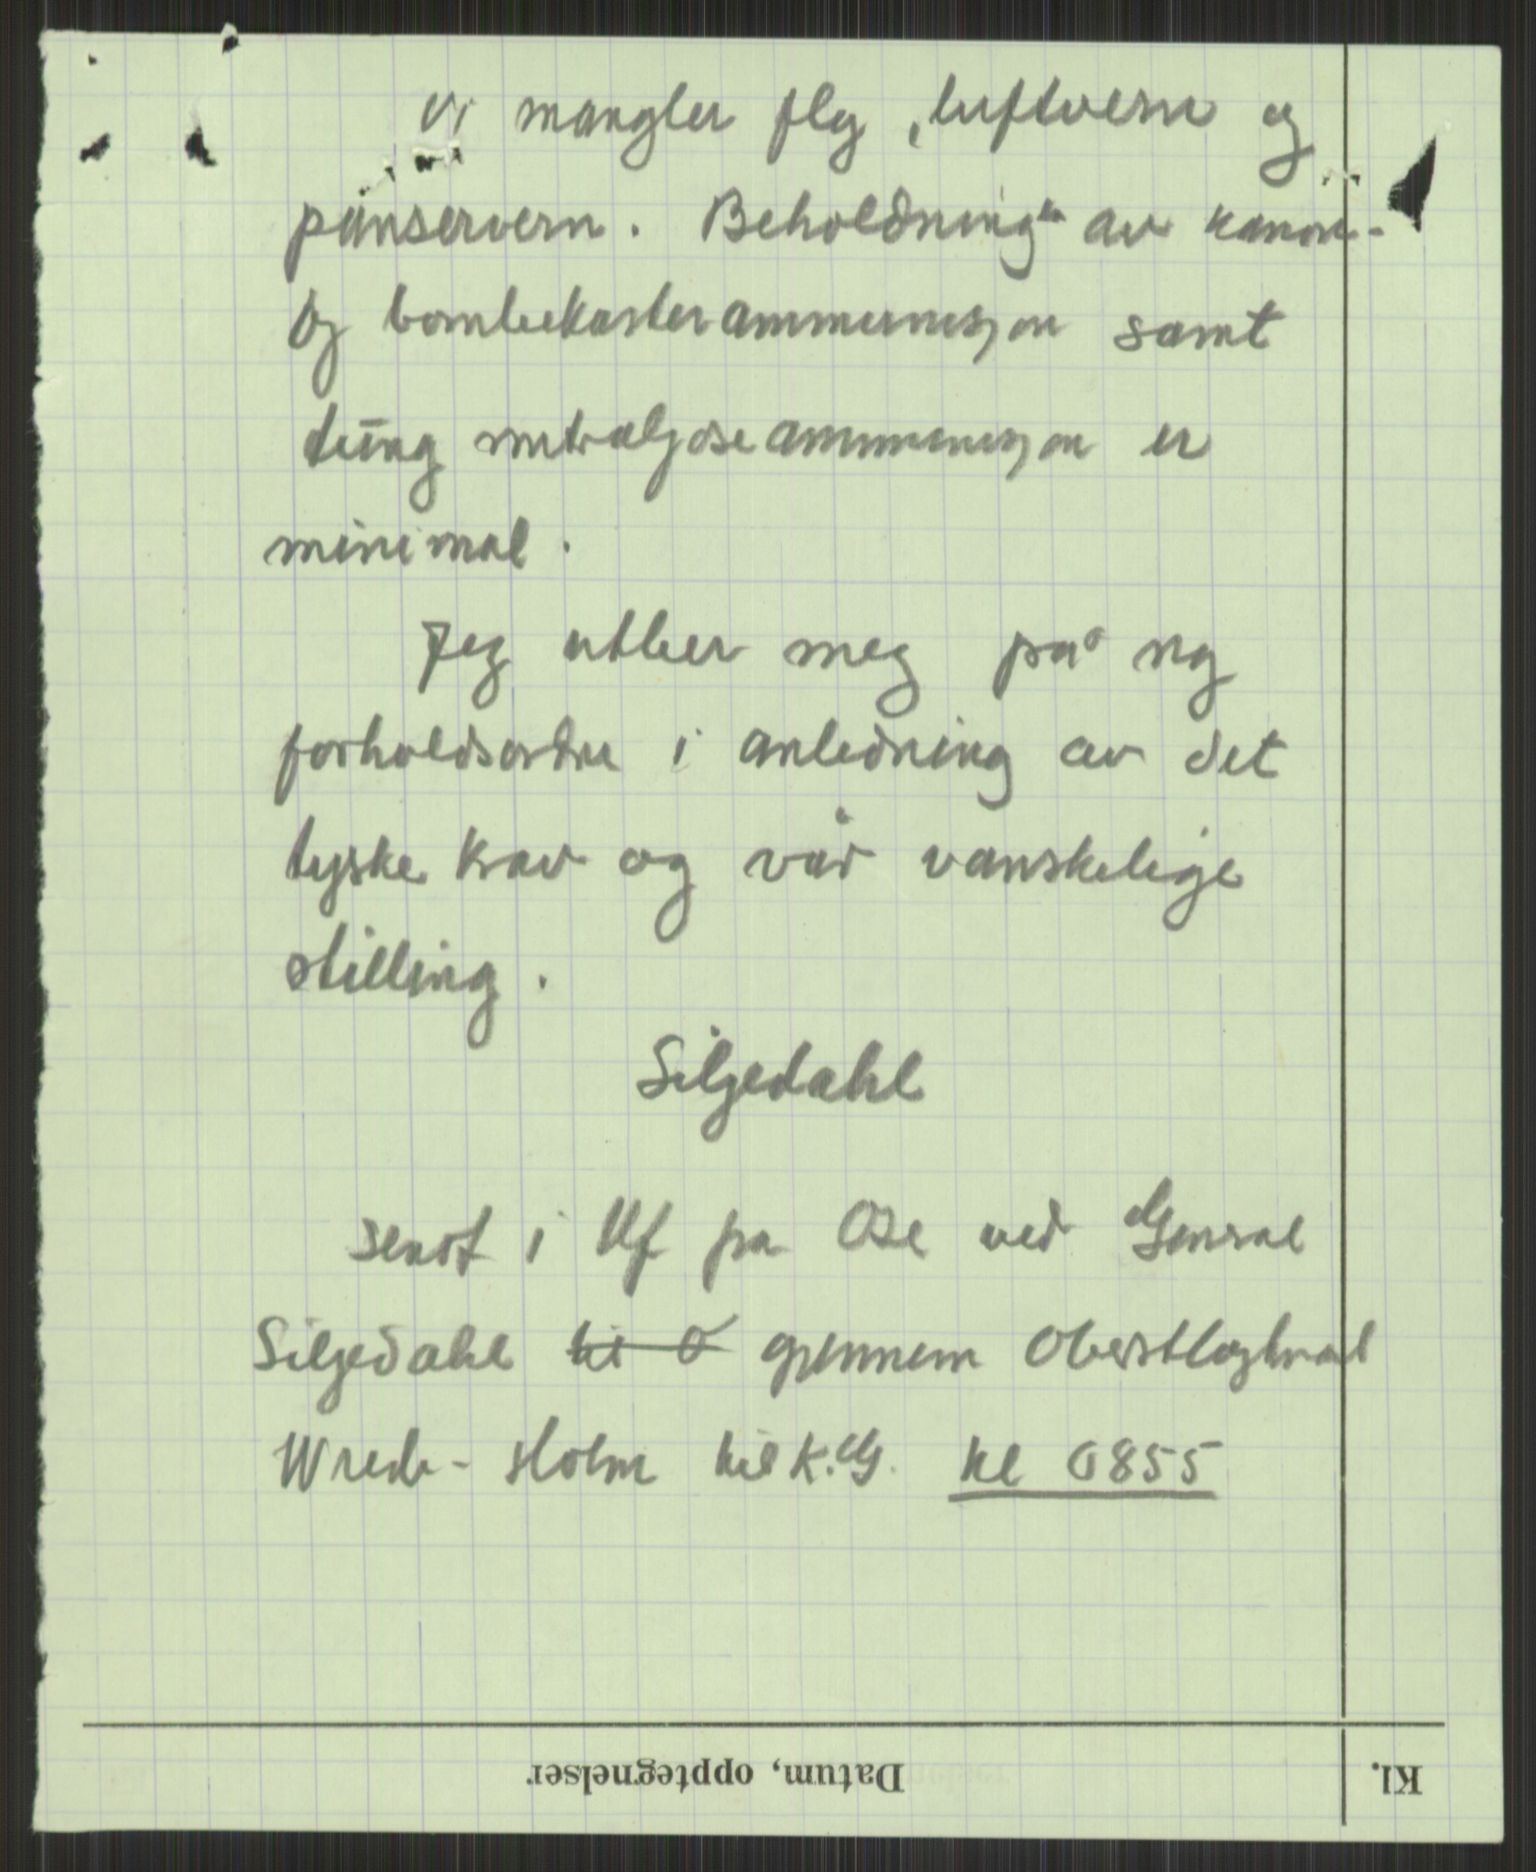 Vi mangler fly, luftvern og
panservern. Beholdning en av kanon-
og bombekasterammunisjon samt
tung mitraljøseammunisjon er
minimal.
Jeg utber meg på ny
forholdsordre i anledning av det
tyske krav og vår vanskelige
stilling.
Siljedahl
sendt i tlf fra Ose ved General
Siljedahl til O gjennem Oberstløytnant
Wrede-Holm til K.G. kl 0855
Datum, opptegnelser
Kl.